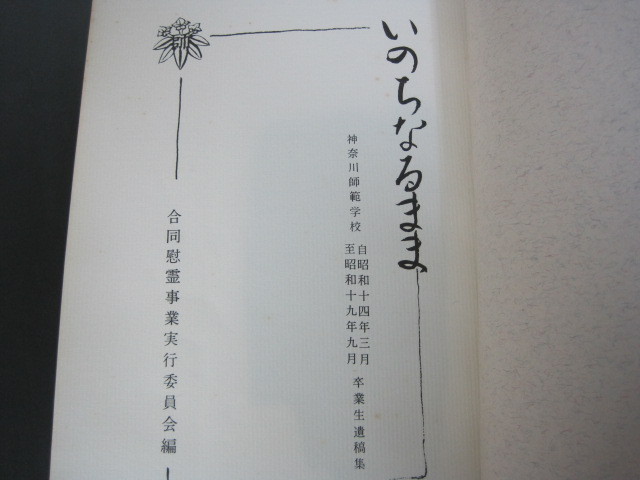 いのちなるまま
神奈川師範学校 自昭和十四年三月
至昭和十九年九月 卒業生遺稿集
合同慰霊事業実行委員会編